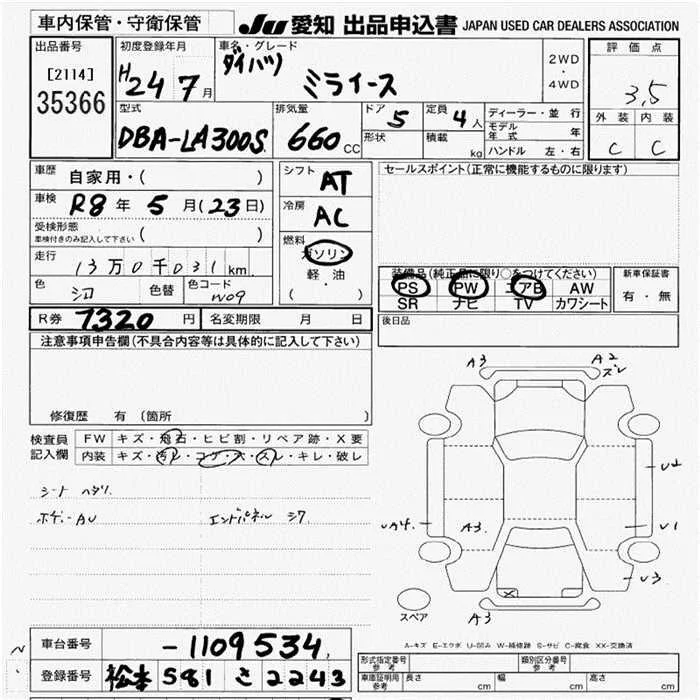 車内保管・守衛保管
JU 愛知 出品申込書 JAPAN USED CAR DEALERS ASSOCIATION
出品番号
[2114]
35366
初度登録年月
H24 7月
車名・グレード
ダイハツ
ミライース
2WD
・
4WD
評価点
3.5
外装 内装
C C
型式
DBA-LA300S
排気量
660 CC
ドア 5
形状
定員 4人
積載 kg
ディーラー・並行
モデル年式 年
ハンドル 左・右
車歴 自家用・( )
車検 R8年 5月(23日)
受検形態
車検付きのみ記入して下さい ( )
走行 13万0千031km
色 色替 色コード
W09
シフト AT
冷房 AC
燃料
ガソリン
軽・油
( )
セールスポイント(正常に機能するものに限ります)
装備品(純正品に限り○をつけてください)
PS PW エアB AW
SR ナビ TV カワシート
新車保証書
有・無
R券 7320円 名変期限 月 日
後日品
注意事項申告欄(不具合内容等は具体的に記入して下さい)
修復歴 有(箇所 )
検査員
記入欄
FW キズ・飛石・ヒビ割・リペア跡・X要
内装 キズ・汚れ・コゲ・穴・スレ・キレ・破レ
シート ヘタリ
ボデーAU エンドパネル シワ
A3 A2
ズレ
U2
UA4. A3. U1
U3
A3
スペア
A-キズ E-エクボ U-凹み W-補修跡 S-サビ C-腐食 XX-交換済
車台番号 -1109534
登録番号 松本 581 さ 2243
形式指定番号
参考
類別区分番号
参考
車庫証明用
参考
長さ cm 幅 cm 高さ cm